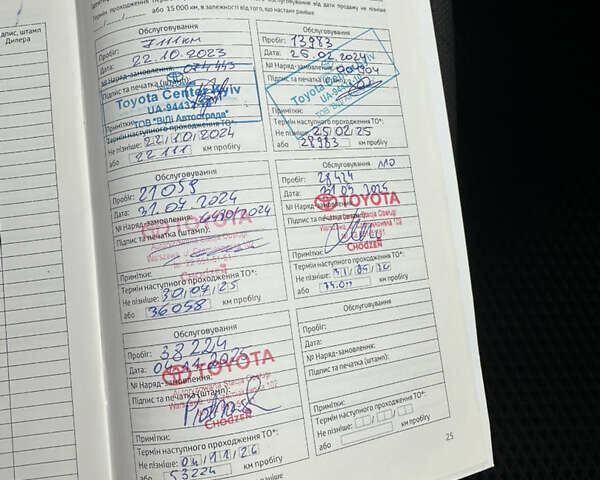 дпис, штамп
Дилера
або 15 000 км, в залежності від того, що настане раніше
Обслуговування
Пробіг: 7111км
Дата: 22.10.2023
№ Наряд-замовлення: 074443
Підпис та печатка (штамп):
Toyota Center Kyiv
UA-94432
ТОВ "ВІДІ Автострада"
Примітки:
Термін наступного проходження ТО*:
Не пізніше: 22/10/2024
або 22111 км пробігу
Обслуговування
Пробіг: 13983
Дата: 25.02.2024
№ Наряд-замовлення:
Підпис та печатка
Примітки:
Термін наступного проходження ТО*:
Не пізніше: 25/02/25
або 28983 км пробігу
Обслуговування
Пробіг: 21058
Дата: 31.07.2024
№ Наряд-замовлення:
Підпис та печатка (штамп):
TOYOTA
CHODZEŃ
Примітки:
Термін наступного проходження ТО*:
Не пізніше: 30/07/25
або 36058 км пробігу
Обслуговування
Пробіг: 28424
Дата:
№ Наряд-замовлення:
TOYOTA
Підпис та печатка
CHODZEŃ
Примітки:
Термін наступного проходження ТО*:
Не пізніше:
або км пробігу
Обслуговування
Пробіг: 38224
Дата: 04.11.2025
TOYOTA
№ Наряд-замовлення:
Autoryzowana Stacja Obsługi
Підпис та печатка (штамп):
CHODZEŃ
Примітки:
Термін наступного проходження ТО*:
Не пізніше: 04/11/26
або 53224 км пробігу
Обслуговування
Пробіг:
Дата:
№ Наряд-замовлення:
Підпис та печатка (штамп):
Примітки:
Термін наступного проходження ТО*:
Не пізніше:
або км пробігу
25